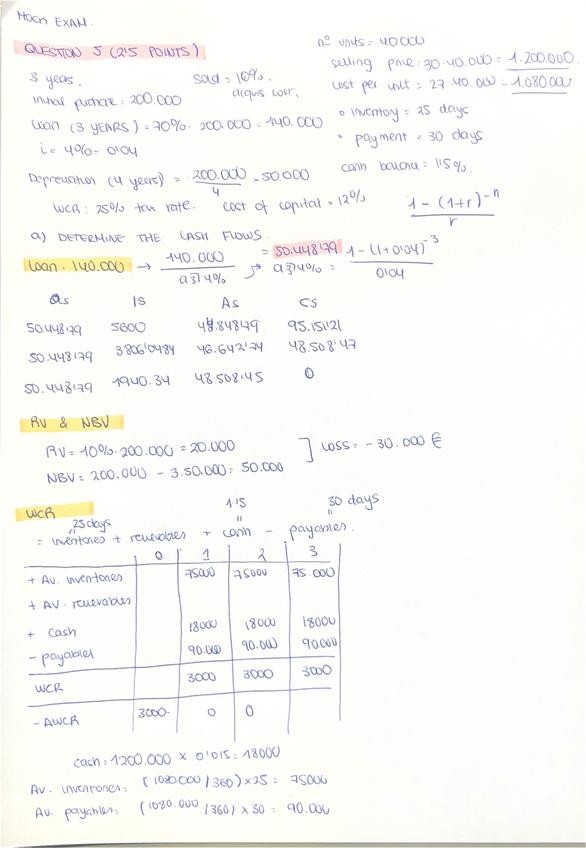 MOCK EXAM.
QUESTION 5 (2'5 POINTS)
3 years.
sold = 10%.
acquis cost.
Initial purchase: 200.000
Loan (3 YEARS) = 70% · 200.000 = 140.000
i = 4% = 0'04
Depreciation (4 years) = 200.000 / 4 = 50.000
WCR: 25% tax rate. cost of capital = 12%
nº units = 40000
selling price: 30·40.000 = 1.200.000.
cost per unit = 27·40.000 = 1.080.000
• inventory = 25 days
• payment = 30 days
cash balance: 1'5%.
1 - (1+r)^-n / r
a) DETERMINE THE CASH FLOWS.
Loan: 140.000 → 140.000 / a3┐4% = 50.448'79
a3┐4% = 1 - (1+0'04)^-3 / 0'04
as Is As Cs
50.448'79 5600 44.848'79 95.151'21
50.448'79 3806'0484 46.642'74 48.508'47
50.448'79 1940.34 48.508'45 0
RV & NBV
RV = 10% · 200.000 = 20.000
NBV = 200.000 - 3·50.000 = 50.000
] LOSS = -30.000 €
WCR
25 days 1'5 30 days
= inventories + receivables + cash - payables.
0 1 2 3
+ Av. inventories 75000 75000 75.000
+ AV. receivables
+ cash 18000 18000 18000
- payables 90.000 90.000 90.000
WCR 3000 3000 3000
- ΔWCR 3000- 0 0
cash = 1200.000 x 0'015 = 18000
Av. inventories = (1080.000/360) x 25 = 75000
Av. payables: (1080.000/360) x 30 = 90.000